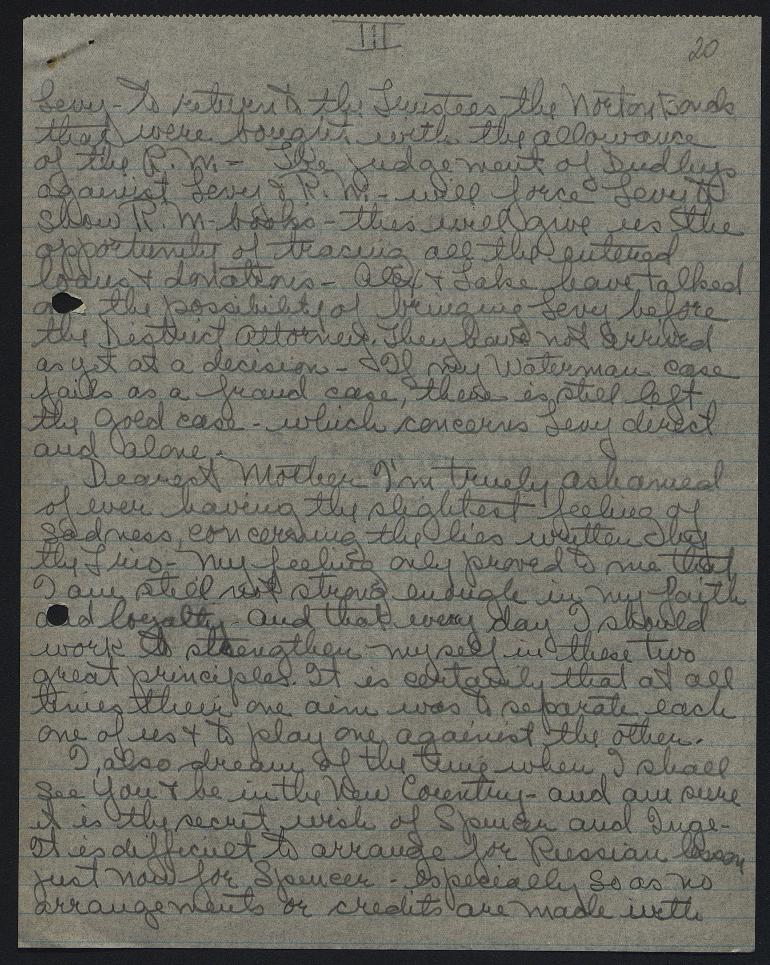 III
20
Levy - to return to the Trustees the Norton bonds
that were bought with the allowance
of the R.M. - The judgement of Dudleys
against Levy & R.M. - will force Levy to
show R.M. books - this will give us the
opportunity of tracing all the entered
loans & donations - Alex & Lake have talked
the possibility of bringing Levy before
the District Attorney. They have not arrived
as yet at a decision - If my Waterman case
fails as a fraud case, there is still left
the gold case - which concerns Levy direct
and alone.
Dearest Mother I'm truely ashamed
of ever having the slightest feeling of
sadness, concerning the lies written by
the Trio - My feeling only proved to me that
I am still not strong enough in my faith
and loyalty - and that every day I should
work to strengthen myself in these two
great principles. It is certainly that at all
times their one aim was to separate each
one of us & to play one against the other.
I, also dream of the time when I shall
see You & be in the New Country - and am sure
it is the secret wish of Spencer and Inge -
It is difficult to arrange for Russian lesson
just now for Spencer - especially so as no
arrangements or credits are made with